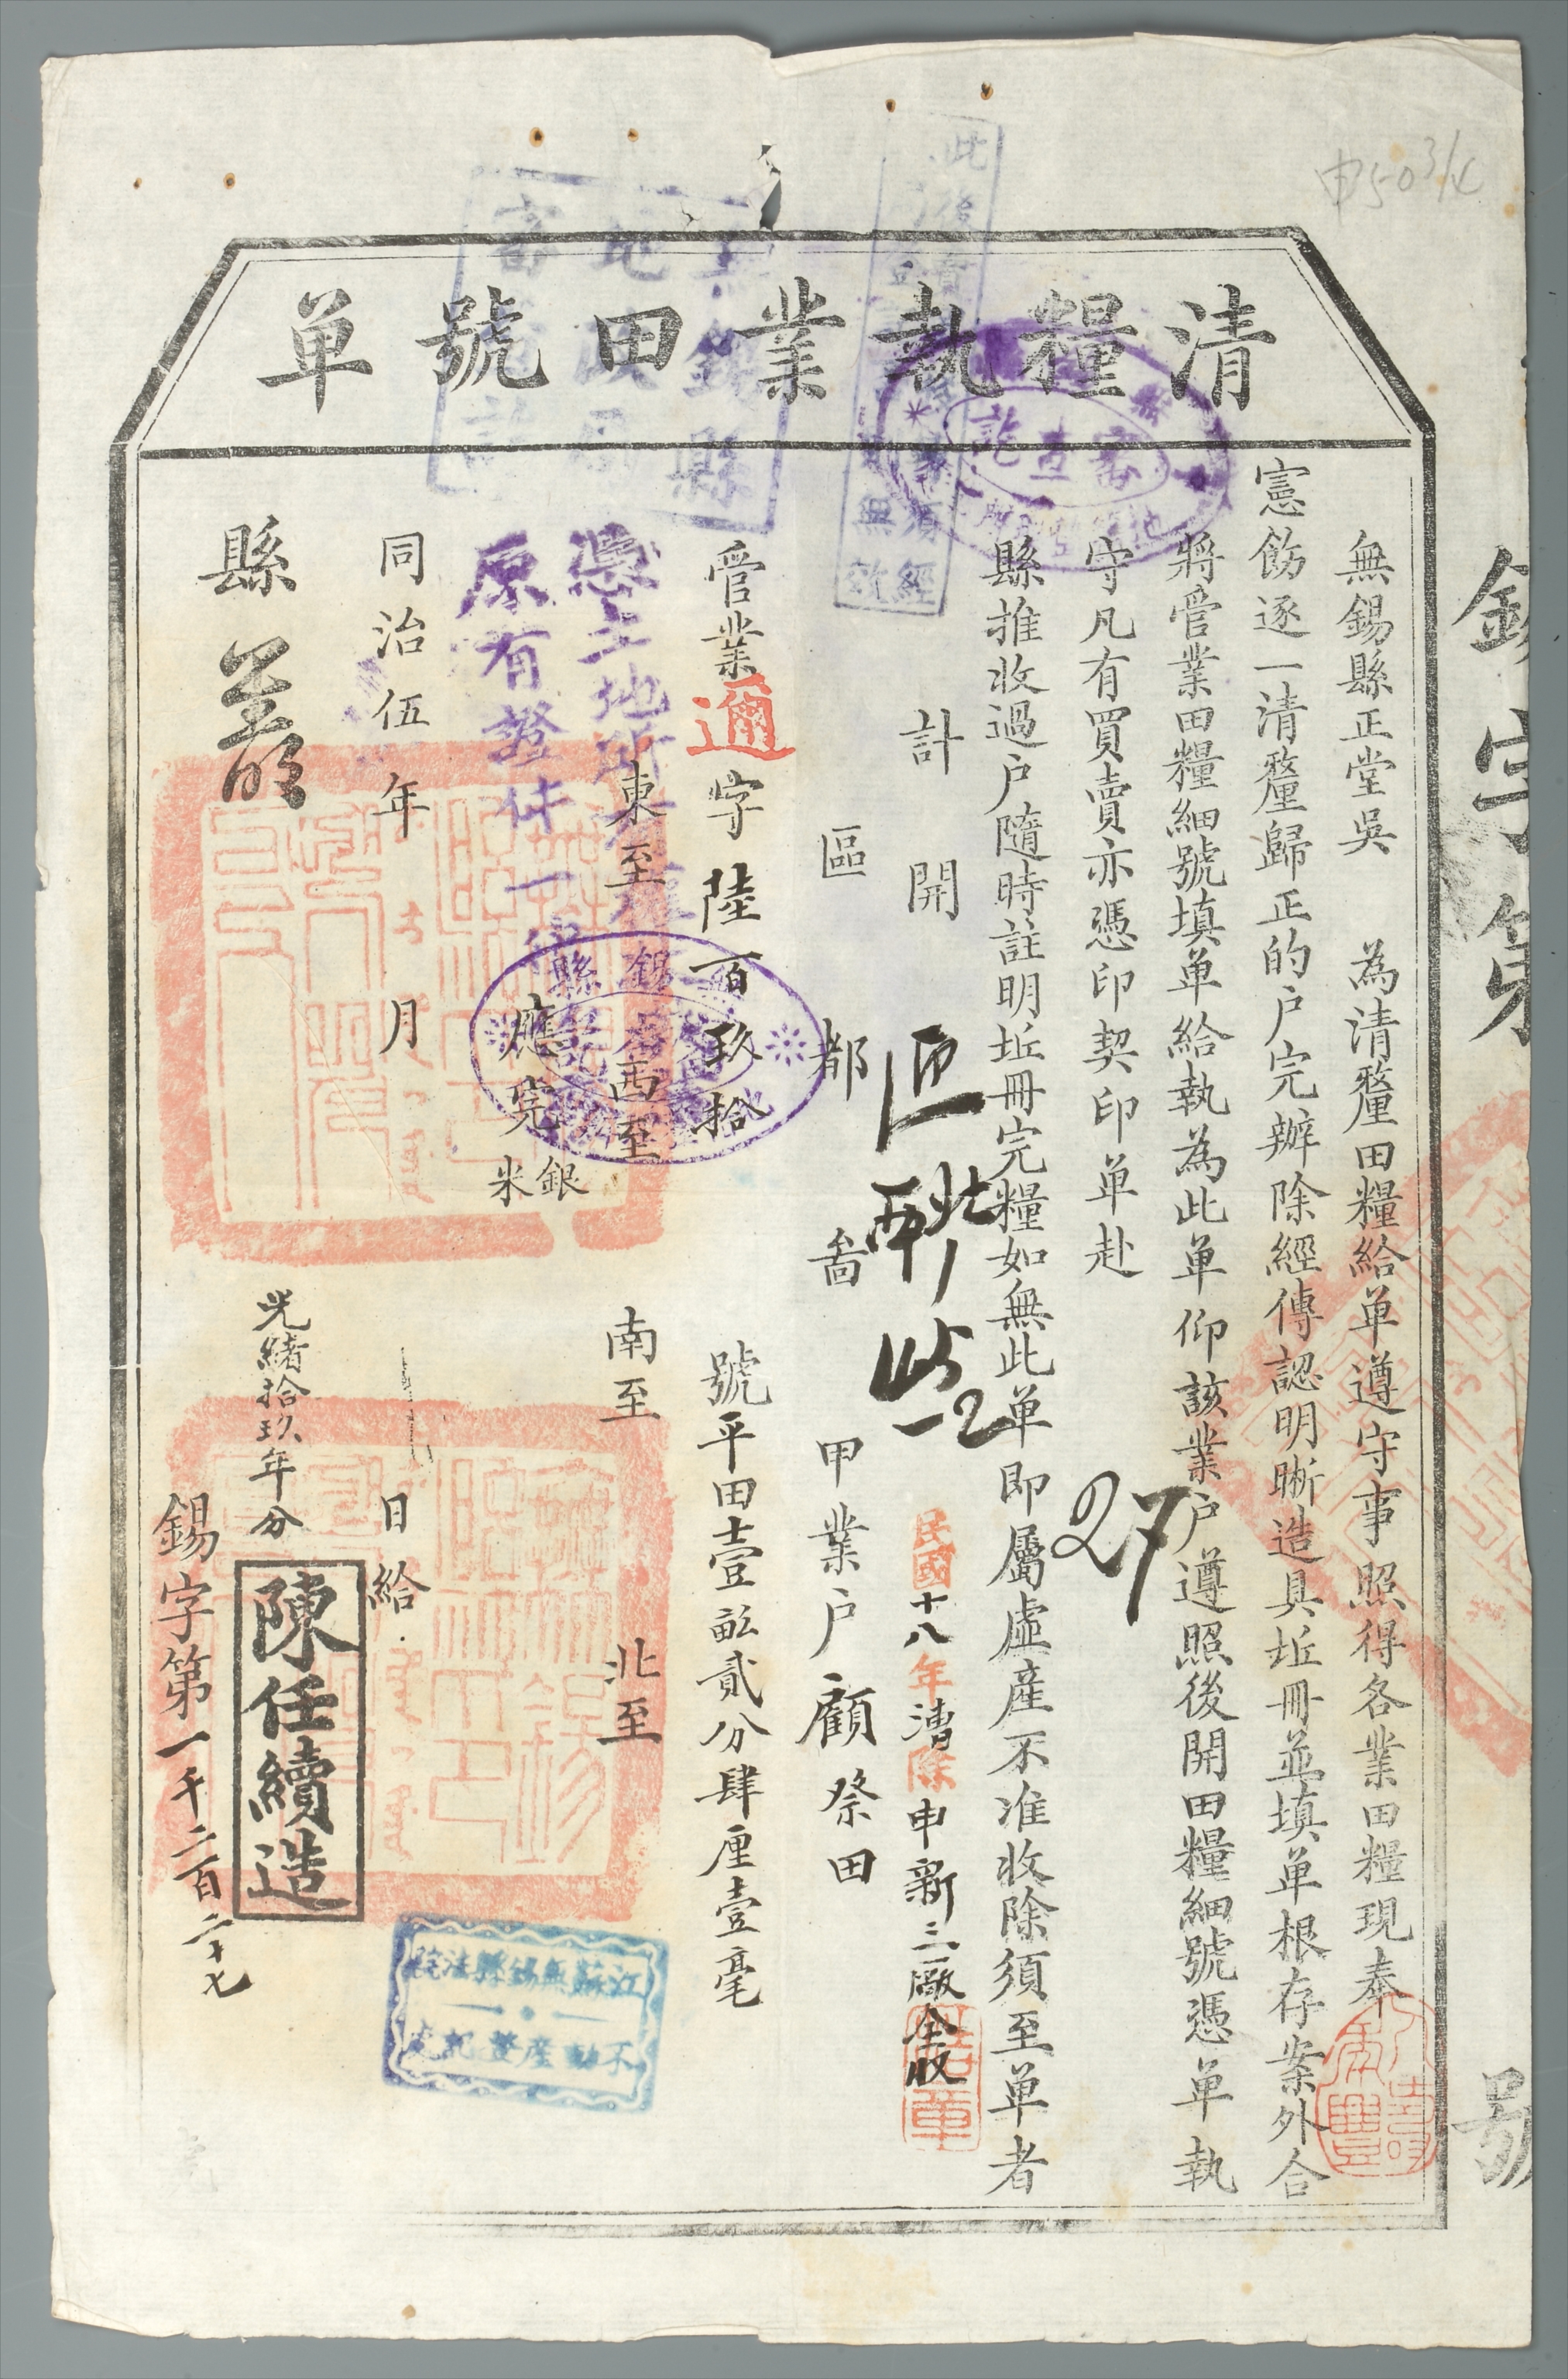 清糧執業田號單
無錫縣正堂吳　為清釐田糧給單遵守事照得各業田糧現奉
憲飭逐一清釐歸正的户完辦除經傳認明晰造具坵冊並填單根存案外合
將管業田糧細號填單給執為此單仰該業户遵照後開田糧細號憑單執
守凡有買賣亦憑印契印單赴
縣推收過户隨時註明坵冊完糧如無此單即屬虛產不准收除須至單者
計開
民國十八年漕除申新三廠全收
區　都　啚　甲業户顧祭田
管業邇字陸百玖拾號平田壹畝貳分肆厘壹毫
東至　西至　南至　北至
應完銀米
同治伍年　月　日給
縣
光緒拾玖年分
陳任續造
錫字第一千二百二十七
27
申503/4
字第　號
原有證件一
審查訖
錫縣
江蘇無錫縣法院
不動產登記處